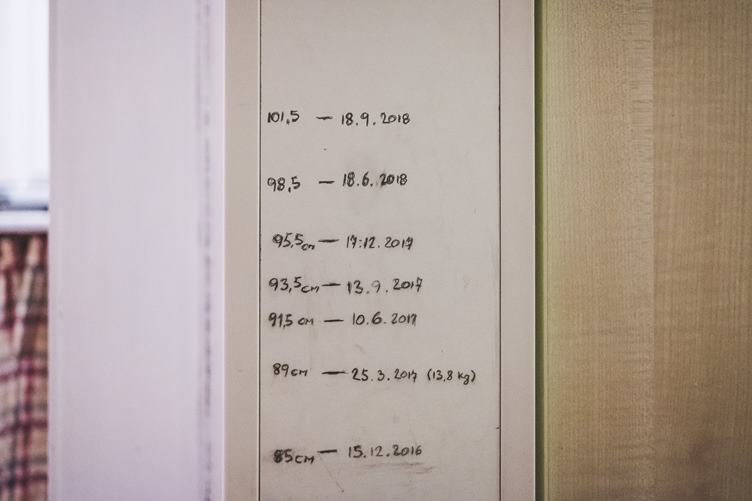 101,5 — 18.9.2018
98,5 — 18.6.2018
95,5cm — 17.12.2017
93,5cm — 13.9.2017
91,5 cm — 10.6.2017
89cm — 25.3.2017 (13,8 kg)
85cm — 15.12.2016